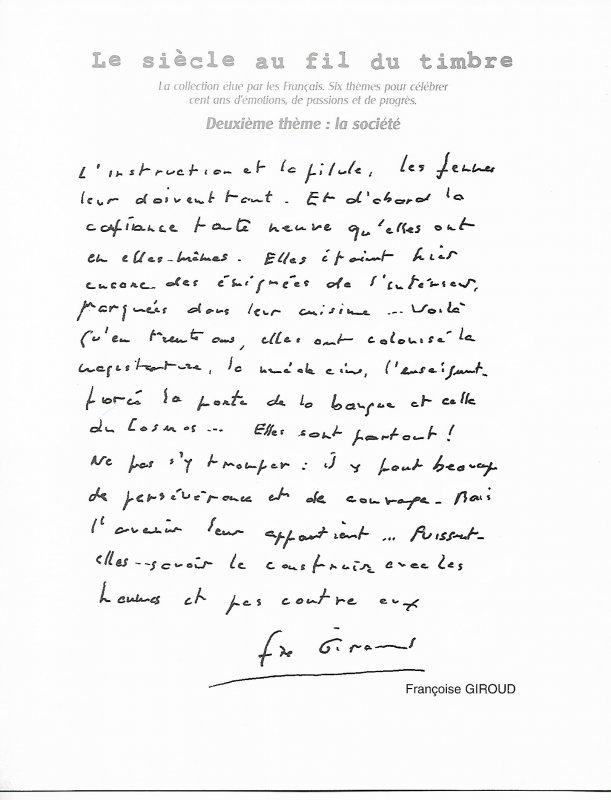 Le siècle au fil du timbre
La collection élue par les Français. Six thèmes pour célébrer
cent ans d'émotions, de passions et de progrès.
Deuxième thème : la société
L'instruction et la pilule, les femmes
leur doivent tout. Et d'abord la
confiance toute neuve qu'elles ont
en elles-mêmes. Elles étaient hier
encore des émigrées de l'intérieur,
parquées dans leur cuisine ... Voilà
qu'en trente ans, elles ont colonisé la
magistrature, la médecine, l'enseignt.
forcé la porte de la banque et celle
du Cosmos ... Elles sont partout !
Ne pas s'y tromper : il y faut beaucoup
de persévérance et de courage. Mais
l'avenir leur appartient ... Puissent-
elles savoir le construire avec les
hommes et pas contre eux
Fse Giroud
Françoise GIROUD